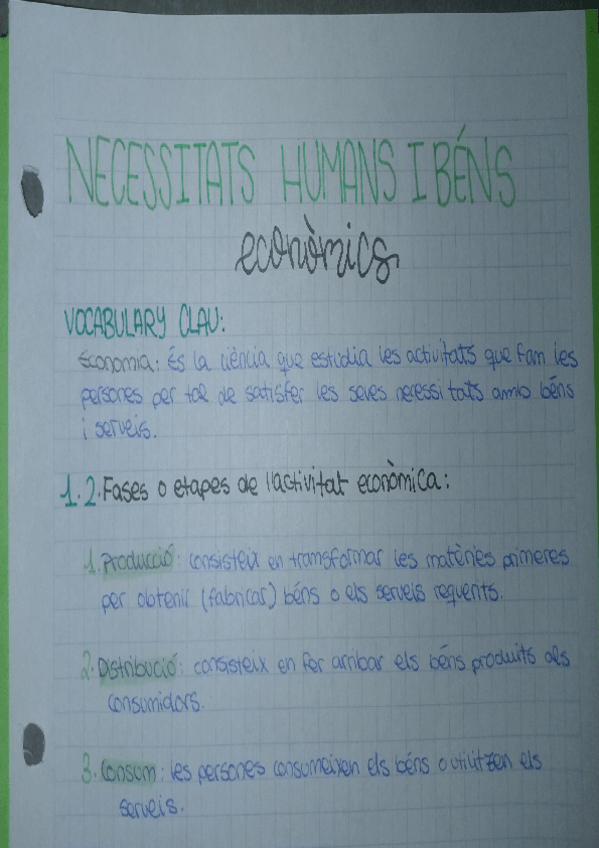 NECESSITATS HUMANS I BÉNS
econòmics
VOCABULARY CLAU:
Economia: És la ciència que estudia les activitats que fam les
persones per tal de satisfer les seves necessitats amb béns
i serveis.
1.2. Fases o etapes de l'activitat econòmica:
1. Producció: consisteix en transformar les matèries primeres
per obtenir (fabricar) béns o els serveis requerits.
2. Distribució: consisteix en fer arribar els béns produïts als
consumidors.
3. Consum: les persones consumeixen els béns o utilitzen els
serveis.